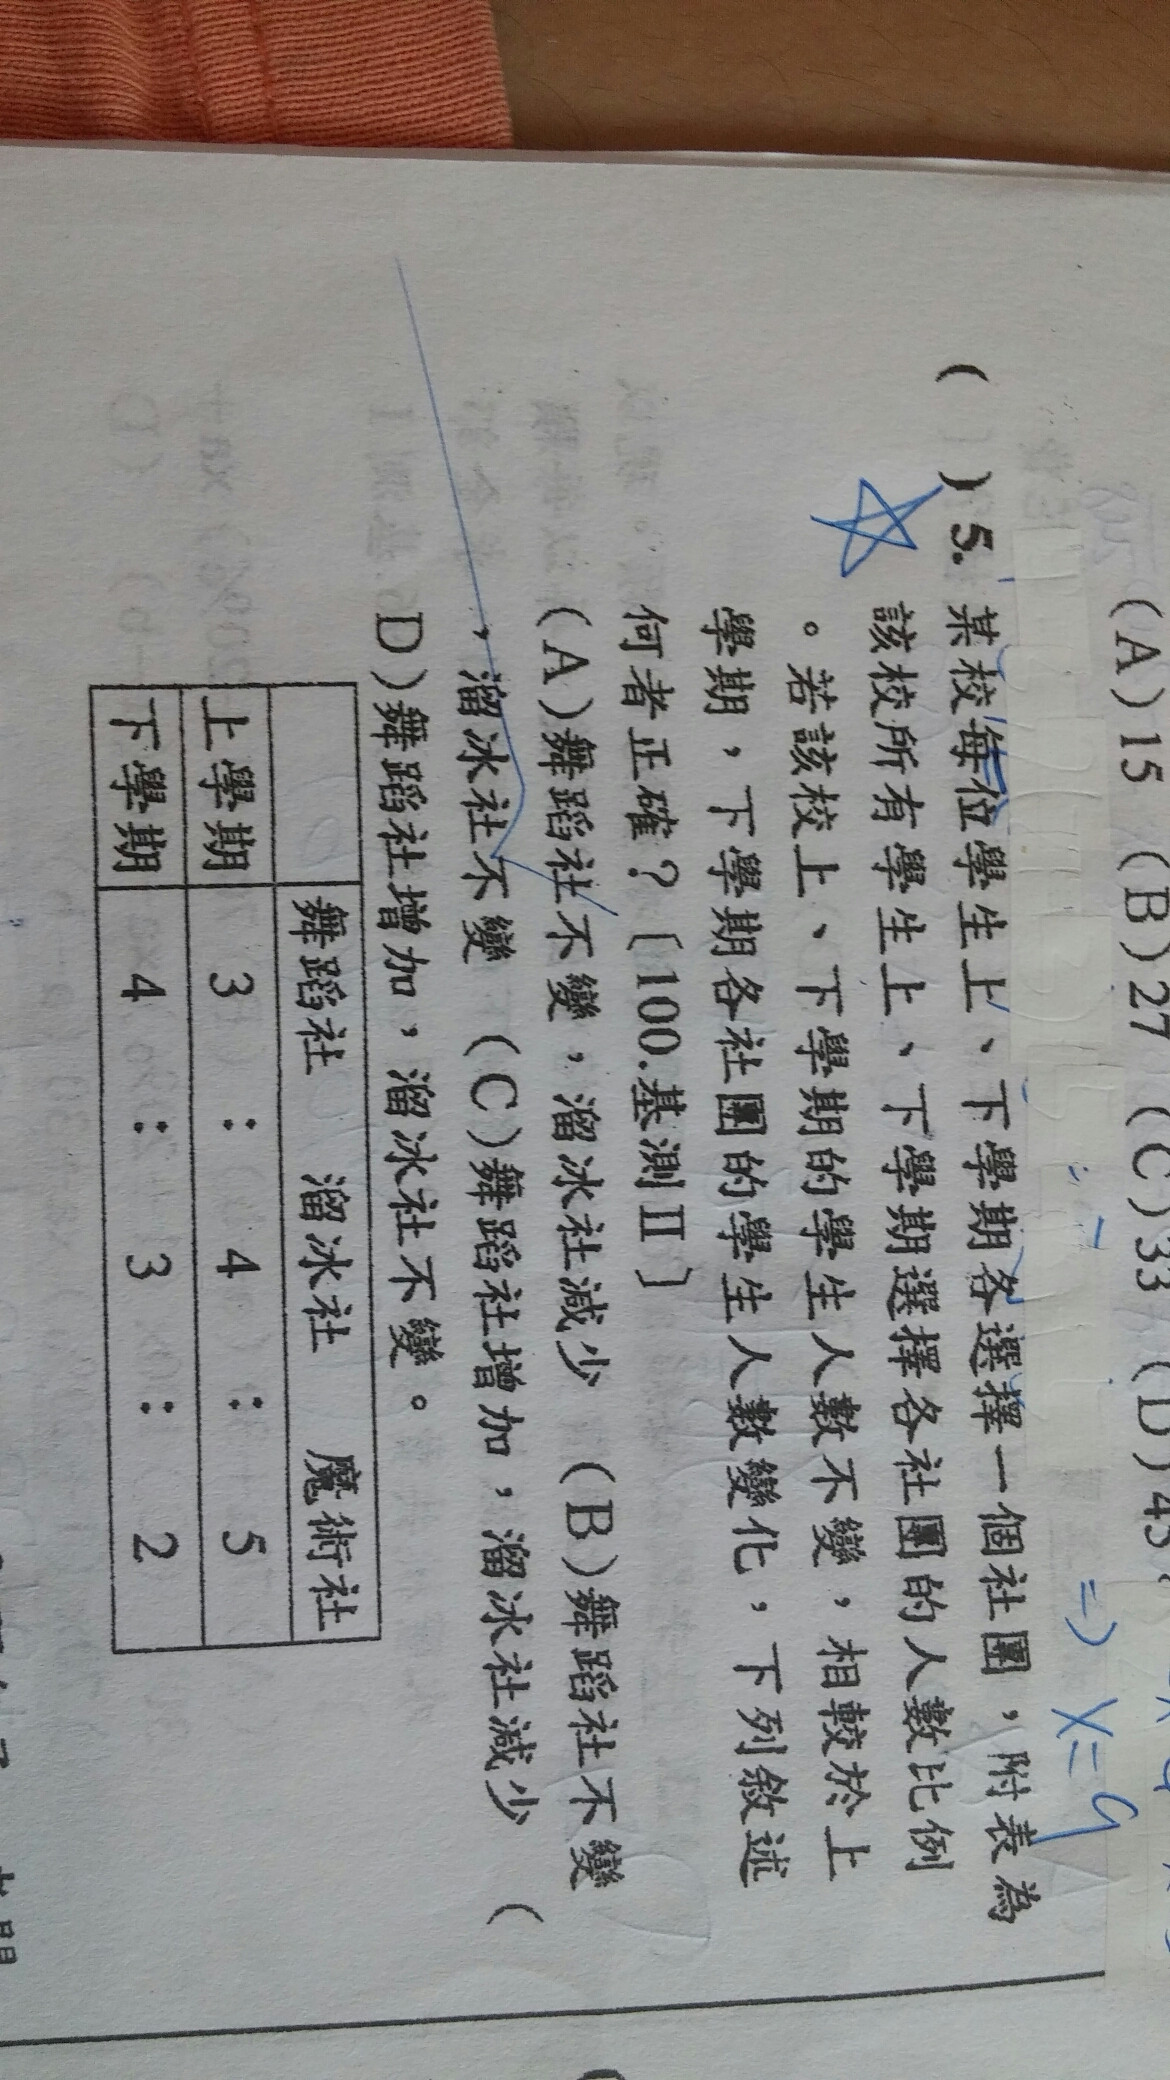 (A)15 (B)27 (C)33 (D)45
=> x=9
( ) 5. 某校每位學生上、下學期各選擇一個社團，附表為
該校所有學生上、下學期選擇各社團的人數比例
。若該校上、下學期的學生人數不變，相較於上
學期，下學期各社團的學生人數變化，下列敘述
何者正確？〔100.基測Ⅱ〕
(A)舞蹈社不變，溜冰社減少 (B)舞蹈社不變
，溜冰社不變 (C)舞蹈社增加，溜冰社減少 (
D)舞蹈社增加，溜冰社不變。
舞蹈社 溜冰社 魔術社
上學期 3 : 4 : 5
下學期 4 : 3 : 2